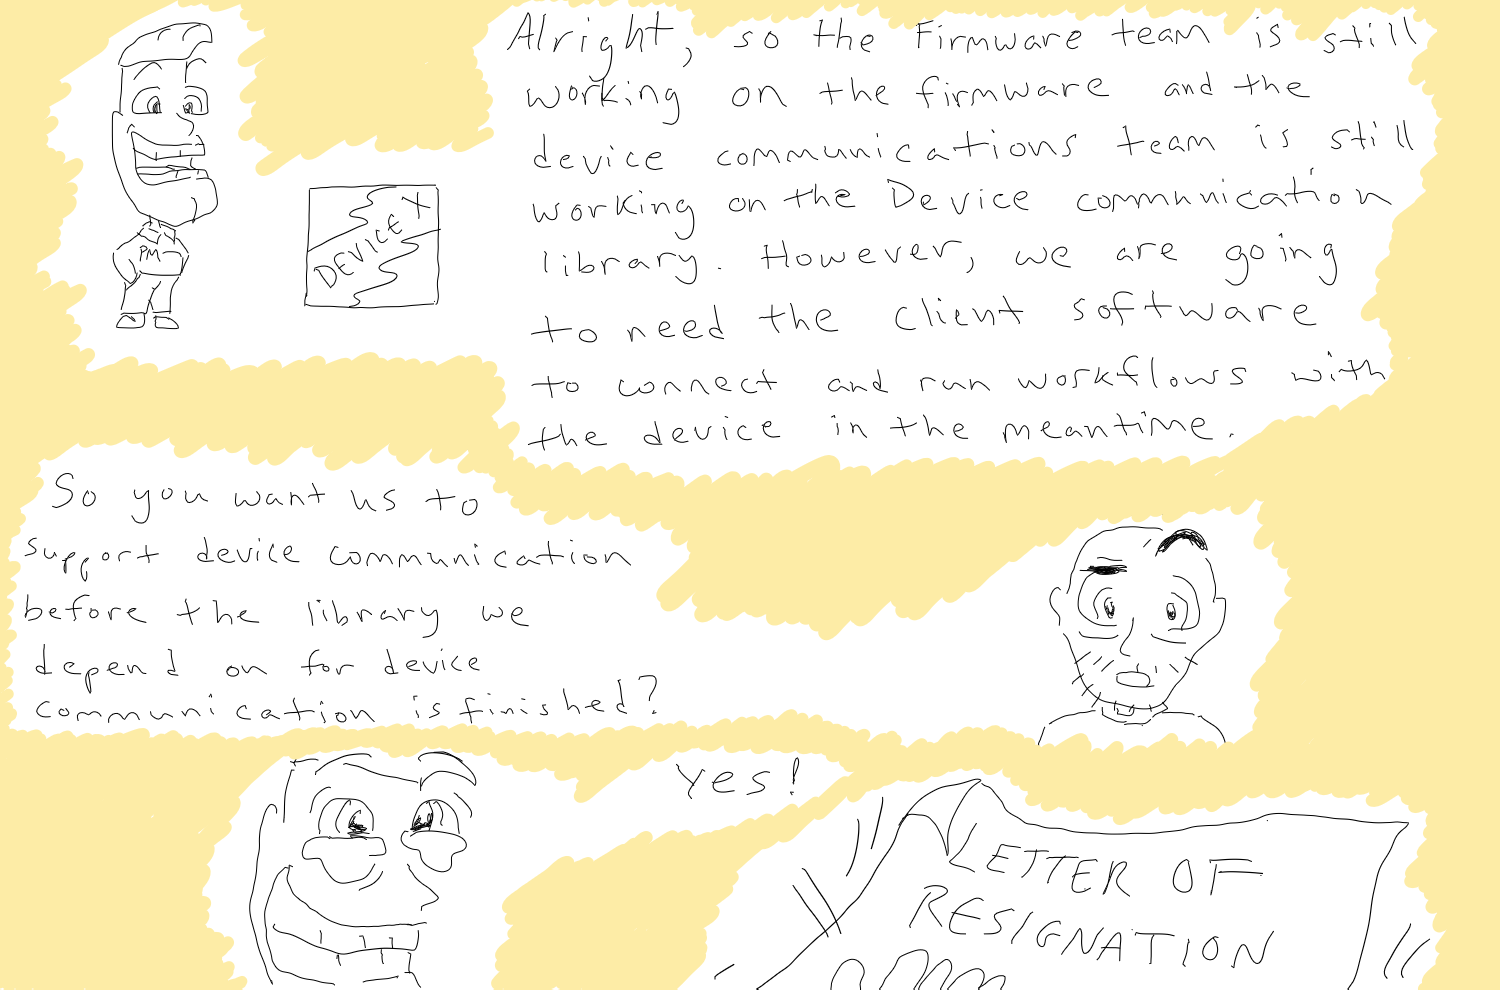 Alright, so the Firmware team is still
working on the firmware and the
device communications team is still
working on the Device communication
library. However, we are going
to need the client software
to connect and run workflows with
the device in the meantime.
PM
DEVICE X
So you want us to
support device communication
before the library we
depend on for device
communication is finished?
Yes!
LETTER OF
RESIGNATION